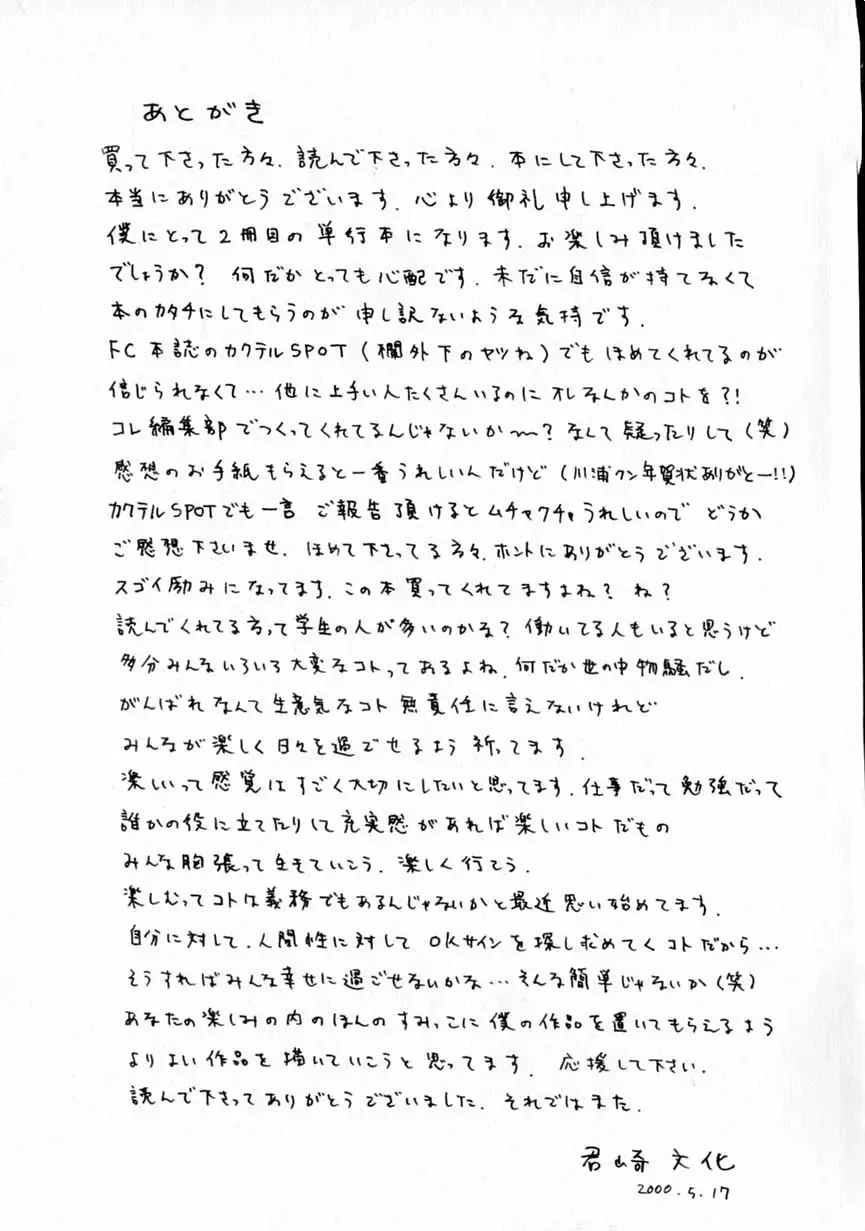 あとがき
買って下さった方々、読んで下さった方々、本にして下さった方々、
本当にありがとうございます。心より御礼申し上げます。
僕にとって2冊目の単行本になります。お楽しみ頂けました
でしょうか？ 何だかとっても心配です。未だに自信が持てなくて
本のカタチにしてもらうのが 申し訳ないような気持です。
FC本誌のカクテルSPOT（欄外下のヤツね）でも ほめてくれてるのが
信じられなくて…他に上手い人たくさんいるのに オレなんかのコトを?!
コレ編集部でつくってくれてるんじゃないか〜？なんて疑ったりして（笑）
感想のお手紙もらえると一番うれしいんだけど（川浦クン年賀状ありがとー!!）
カクテルSPOTでも一言 ご報告頂けるとムチャクチャうれしいので どうか
ご感想下さいませ。ほめて下さってる方々、ホントにありがとうございます。
スゴイ励みになってます。この本買ってくれてますよね？ ね？
読んでくれてる方って学生の人が多いのかな？働いてる人もいると思うけど
多分みんないろいろ大変なコトってあるよね。何だか世の中物騒だし。
がんばれなんて生意気なコト無責任に言えないけれど
みんなが楽しく日々を過ごせるよう祈ってます。
楽しいって感覚はすごく大切にしたいと思ってます。仕事だって勉強だって
誰かの役に立てたりして充実感があれば楽しいコトだもの
みんな胸張って生きていこう。楽しく行こう。
楽しむってコトは義務でもあるんじゃないかと最近思い始めてます。
自分に対して、人間性に対して OKサインを探し求めてくコトだから…
そうすればみんな幸せに過ごせないかな…そんな簡単じゃないか（笑）
あなたの楽しみの内のほんのすみっこに僕の作品を置いてもらえるよう
よりよい作品を描いていこうと思ってます。 応援して下さい。
読んで下さってありがとうございました。それではまた。
君崎文化
2000.5.17